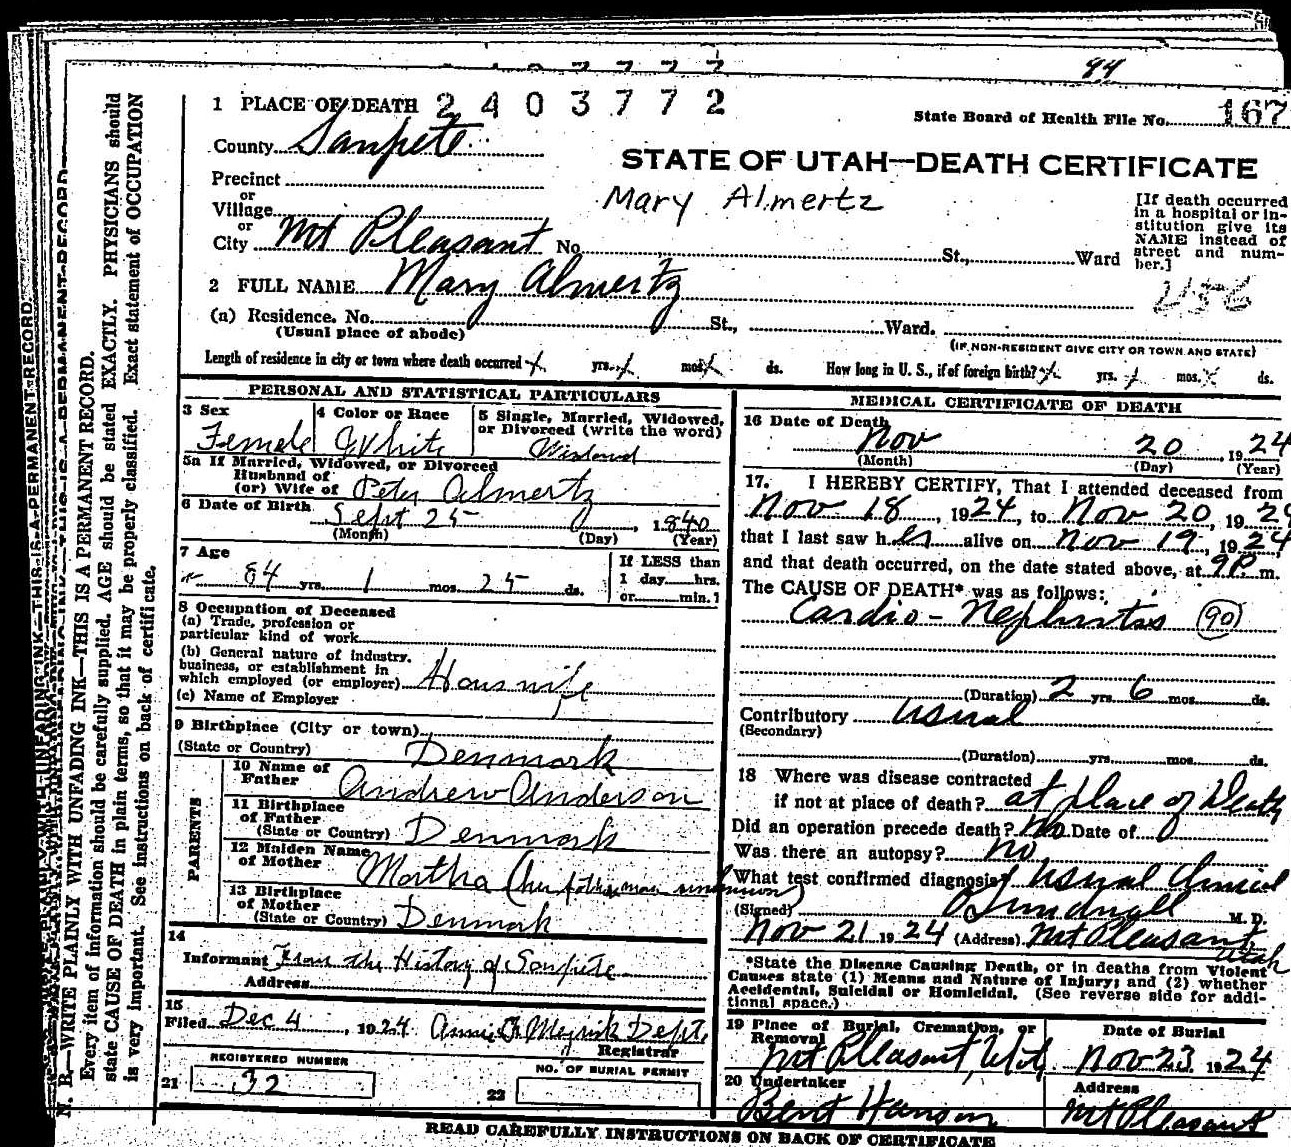 94
1 PLACE OF DEATH 2403772
State Board of Health File No. 167
County Sanpete
STATE OF UTAH—DEATH CERTIFICATE
Precinct
Mary Almertz
or
Village
or
City Mt Pleasant No. St., Ward
[If death occurred
in a hospital or in-
stitution give its
NAME instead of
street and num-
ber.]
2 FULL NAME Mary Almertz
456
(a) Residence. No. St., Ward.
(Usual place of abode)
(IF NON-RESIDENT GIVE CITY OR TOWN AND STATE)
Length of residence in city or town where death occurred yrs. mos. ds. How long in U. S., if of foreign birth? yrs. mos. ds.
PERSONAL AND STATISTICAL PARTICULARS
3 Sex
Female
4 Color or Race
White
5 Single, Married, Widowed,
or Divorced (write the word)
Widowed
5a If Married, Widowed, or Divorced
Husband of
(or) Wife of Peter Almertz
6 Date of Birth Sept 25, 1840
(Month) (Day) (Year)
7 Age
84 yrs. 1 mos. 25 ds.
If LESS than
1 day hrs.
or min.]
8 Occupation of Deceased
(a) Trade, profession or
particular kind of work
(b) General nature of industry,
business, or establishment in
which employed (or employer) Houswife
(c) Name of Employer
9 Birthplace (City or town)
(State or Country) Denmark
PARENTS
10 Name of
Father Andrew Anderson
11 Birthplace
of Father
(State or Country) Denmark
12 Maiden Name
of Mother Martha (her father's unknown)
13 Birthplace
of Mother
(State or Country) Denmark
14
Informant From the History of Sanpete
Address
15
Filed Dec 4, 1924 Registrar
REGISTERED NUMBER
21 32
NO. OF BURIAL PERMIT
22
MEDICAL CERTIFICATE OF DEATH
16 Date of Death
Nov 20, 1924
(Month) (Day) (Year)
17. I HEREBY CERTIFY, That I attended deceased from
Nov 18, 1924, to Nov 20, 1924
that I last saw her alive on Nov 19, 1924
and that death occurred, on the date stated above, at 9P. m.
The CAUSE OF DEATH* was as follows:
Cardio-Nephritis (90)
(Duration) 2 yrs. 6 mos. ds.
Contributory usual
(Secondary)
(Duration) yrs. mos. ds.
18 Where was disease contracted
if not at place of death? at place of Death
Did an operation precede death? No Date of
Was there an autopsy? no
What test confirmed diagnosis? Usual Clinical
(Signed) Sundwall M. D.
Nov 21 1924 (Address) Mt Pleasant
Utah
*State the Disease Causing Death, or in deaths from Violent
Causes state (1) Means and Nature of Injury; and (2) whether
Accidental, Suicidal or Homicidal. (See reverse side for addi-
tional space.)
19 Place of Burial, Cremation, or
Removal
Mt Pleasant, Utah
Date of Burial
Nov 23 1924
20 Undertaker
Bent Hansen
Address
Mt Pleasant
READ CAREFULLY INSTRUCTIONS ON BACK OF CERTIFICATE
N. B.—WRITE PLAINLY WITH UNFADING INK—THIS IS A PERMANENT RECORD.
Every item of information should be carefully supplied. AGE should be stated EXACTLY. PHYSICIANS should
state CAUSE OF DEATH in plain terms, so that it may be properly classified. Exact statement of OCCUPATION
is very important. See instructions on back of certificate.